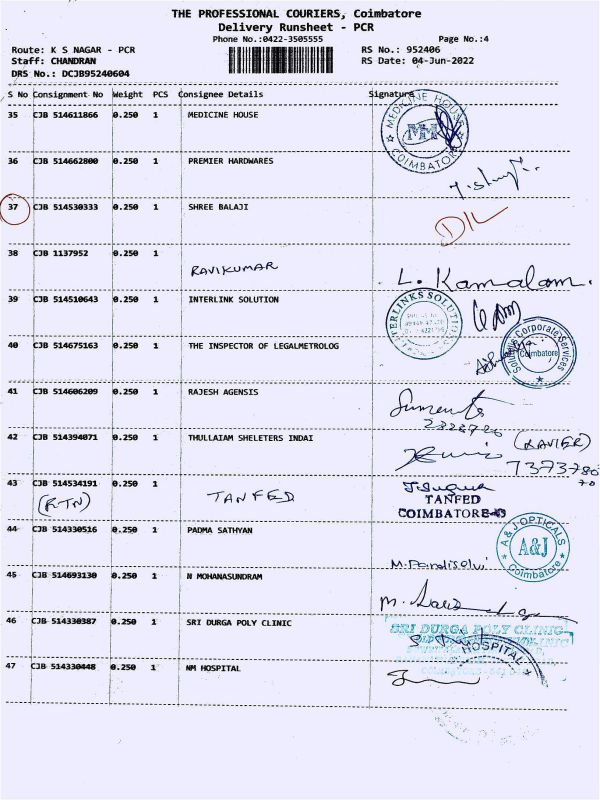 THE PROFESSIONAL COURIERS, Coimbatore
Delivery Runsheet - PCR
Phone No.:0422-3505555 Page No.:4
Route: K S NAGAR - PCR RS No.: 952406
Staff: CHANDRAN RS Date: 04-Jun-2022
DRS No.: DCJB95240604
S No Consignment No Weight PCS Consignee Details Signature
35 CJB 514611866 0.250 1 MEDICINE HOUSE
MEDICINE HOUSE MM COIMBATORE
36 CJB 514662800 0.250 1 PREMIER HARDWARES
37 CJB 514530333 0.250 1 SHREE BALAJI
D/L
38 CJB 1137952 0.250 1
RAVIKUMAR L. Kamalam.
39 CJB 514510643 0.250 1 INTERLINK SOLUTION
40 CJB 514675163 0.250 1 THE INSPECTOR OF LEGALMETROLOG
Corporate Services Coimbatore
41 CJB 514606209 0.250 1 RAJESH AGENSIS
42 CJB 514394071 0.250 1 THULLAIAM SHELETERS INDAI
(RAVIER)
43 CJB 514534191 0.250 1
(RTN) TANFED
TANFED
COIMBATORE-43
44 CJB 514330516 0.250 1 PADMA SATHYAN
A & J OPTICALS A&J Coimbatore
45 CJB 514693130 0.250 1 N MOHANASUNDRAM
46 CJB 514330387 0.250 1 SRI DURGA POLY CLINIC
SRI DURGA POLY CLINIC
HOSPITAL
47 CJB 514330448 0.250 1 NM HOSPITAL